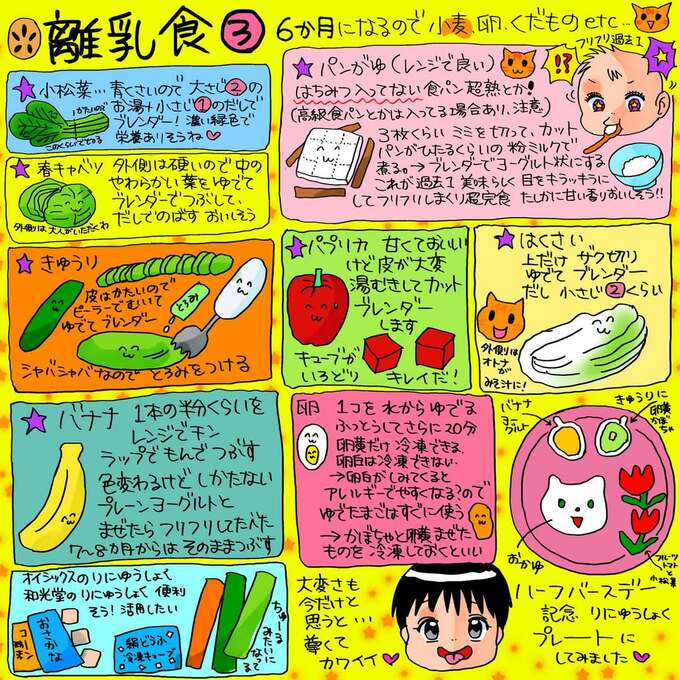 離乳食③
6か月になるので小麦、卵、くだものetc…
★小松菜…青くさいので大さじ②の
お湯+小さじ①のだしで
ブレンダー!濃い緑色で
栄養ありそうね♥
かたいので
このくらいでとめる
★春キャベツ
外側は硬いので中の
やわらかい葉をゆでて
ブレンダーでつぶして、
だしでのばす おいしそう
外側は大人がいただくわ
★パンがゆ(レンジで良い)
はちみつ入ってない食パン超熟とか!
(高級食パンとかは入ってる場合あり、注意)
3枚くらいミミを切って、カット
パンがひたるくらいの粉ミルクで
煮る。→ブレンダーでヨーグルト状にする
これが過去1美味らしく目をキラッキラに
してフリフリしまくり超完食 たしかに甘い香りおいしそう!!
フリフリ過去1
!?
★きゅうり
皮はかたいので
ピーラーでむいて
ゆでてブレンダー
とろみ
シャバシャバなのでとろみをつける
★パプリカ 甘くておいしい
けど皮が大変
湯むきしてカット
ブレンダー
します
キューブが
いろどり
キレイだ!
★はくさい
上だけザク切り
ゆでてブレンダー
だし小さじ②くらい
外側は
オトナが
みそ汁に!
★バナナ 1本の半分くらいを
レンジでチン
ラップでもんでつぶす
色変わるけどしかたない
プレーンヨーグルトと
まぜたらフリフリしてたべた
7〜8か月からはそのままつぶす
卵 1コを水からゆでる
ふっとうしてさらに20分
卵黄だけ冷凍できる
卵白は冷凍できない
→卵白がしみてくると
アレルギーでやすくなる?ので
ゆでたまごはすぐに使う
→かぼちゃと卵黄まぜた
ものを冷凍しておくといい
バナナ
ヨーグルト
きゅうりに
卵黄
かぼちゃ
おかゆ
フルーツ
トマト
と
小松菜
オイシックスのりにゅうしょく
和光堂のりにゅうしょく 便利
そう!活用したい
コーン
おさかな
絹どうふ
冷凍キューブ
ちゅーる
みたいに
なってる
大変さも
今だけと
思うと…
尊くて
カワイイ♥
ハーフバースデー
記念 りにゅうしょく
プレートに
してみました♥